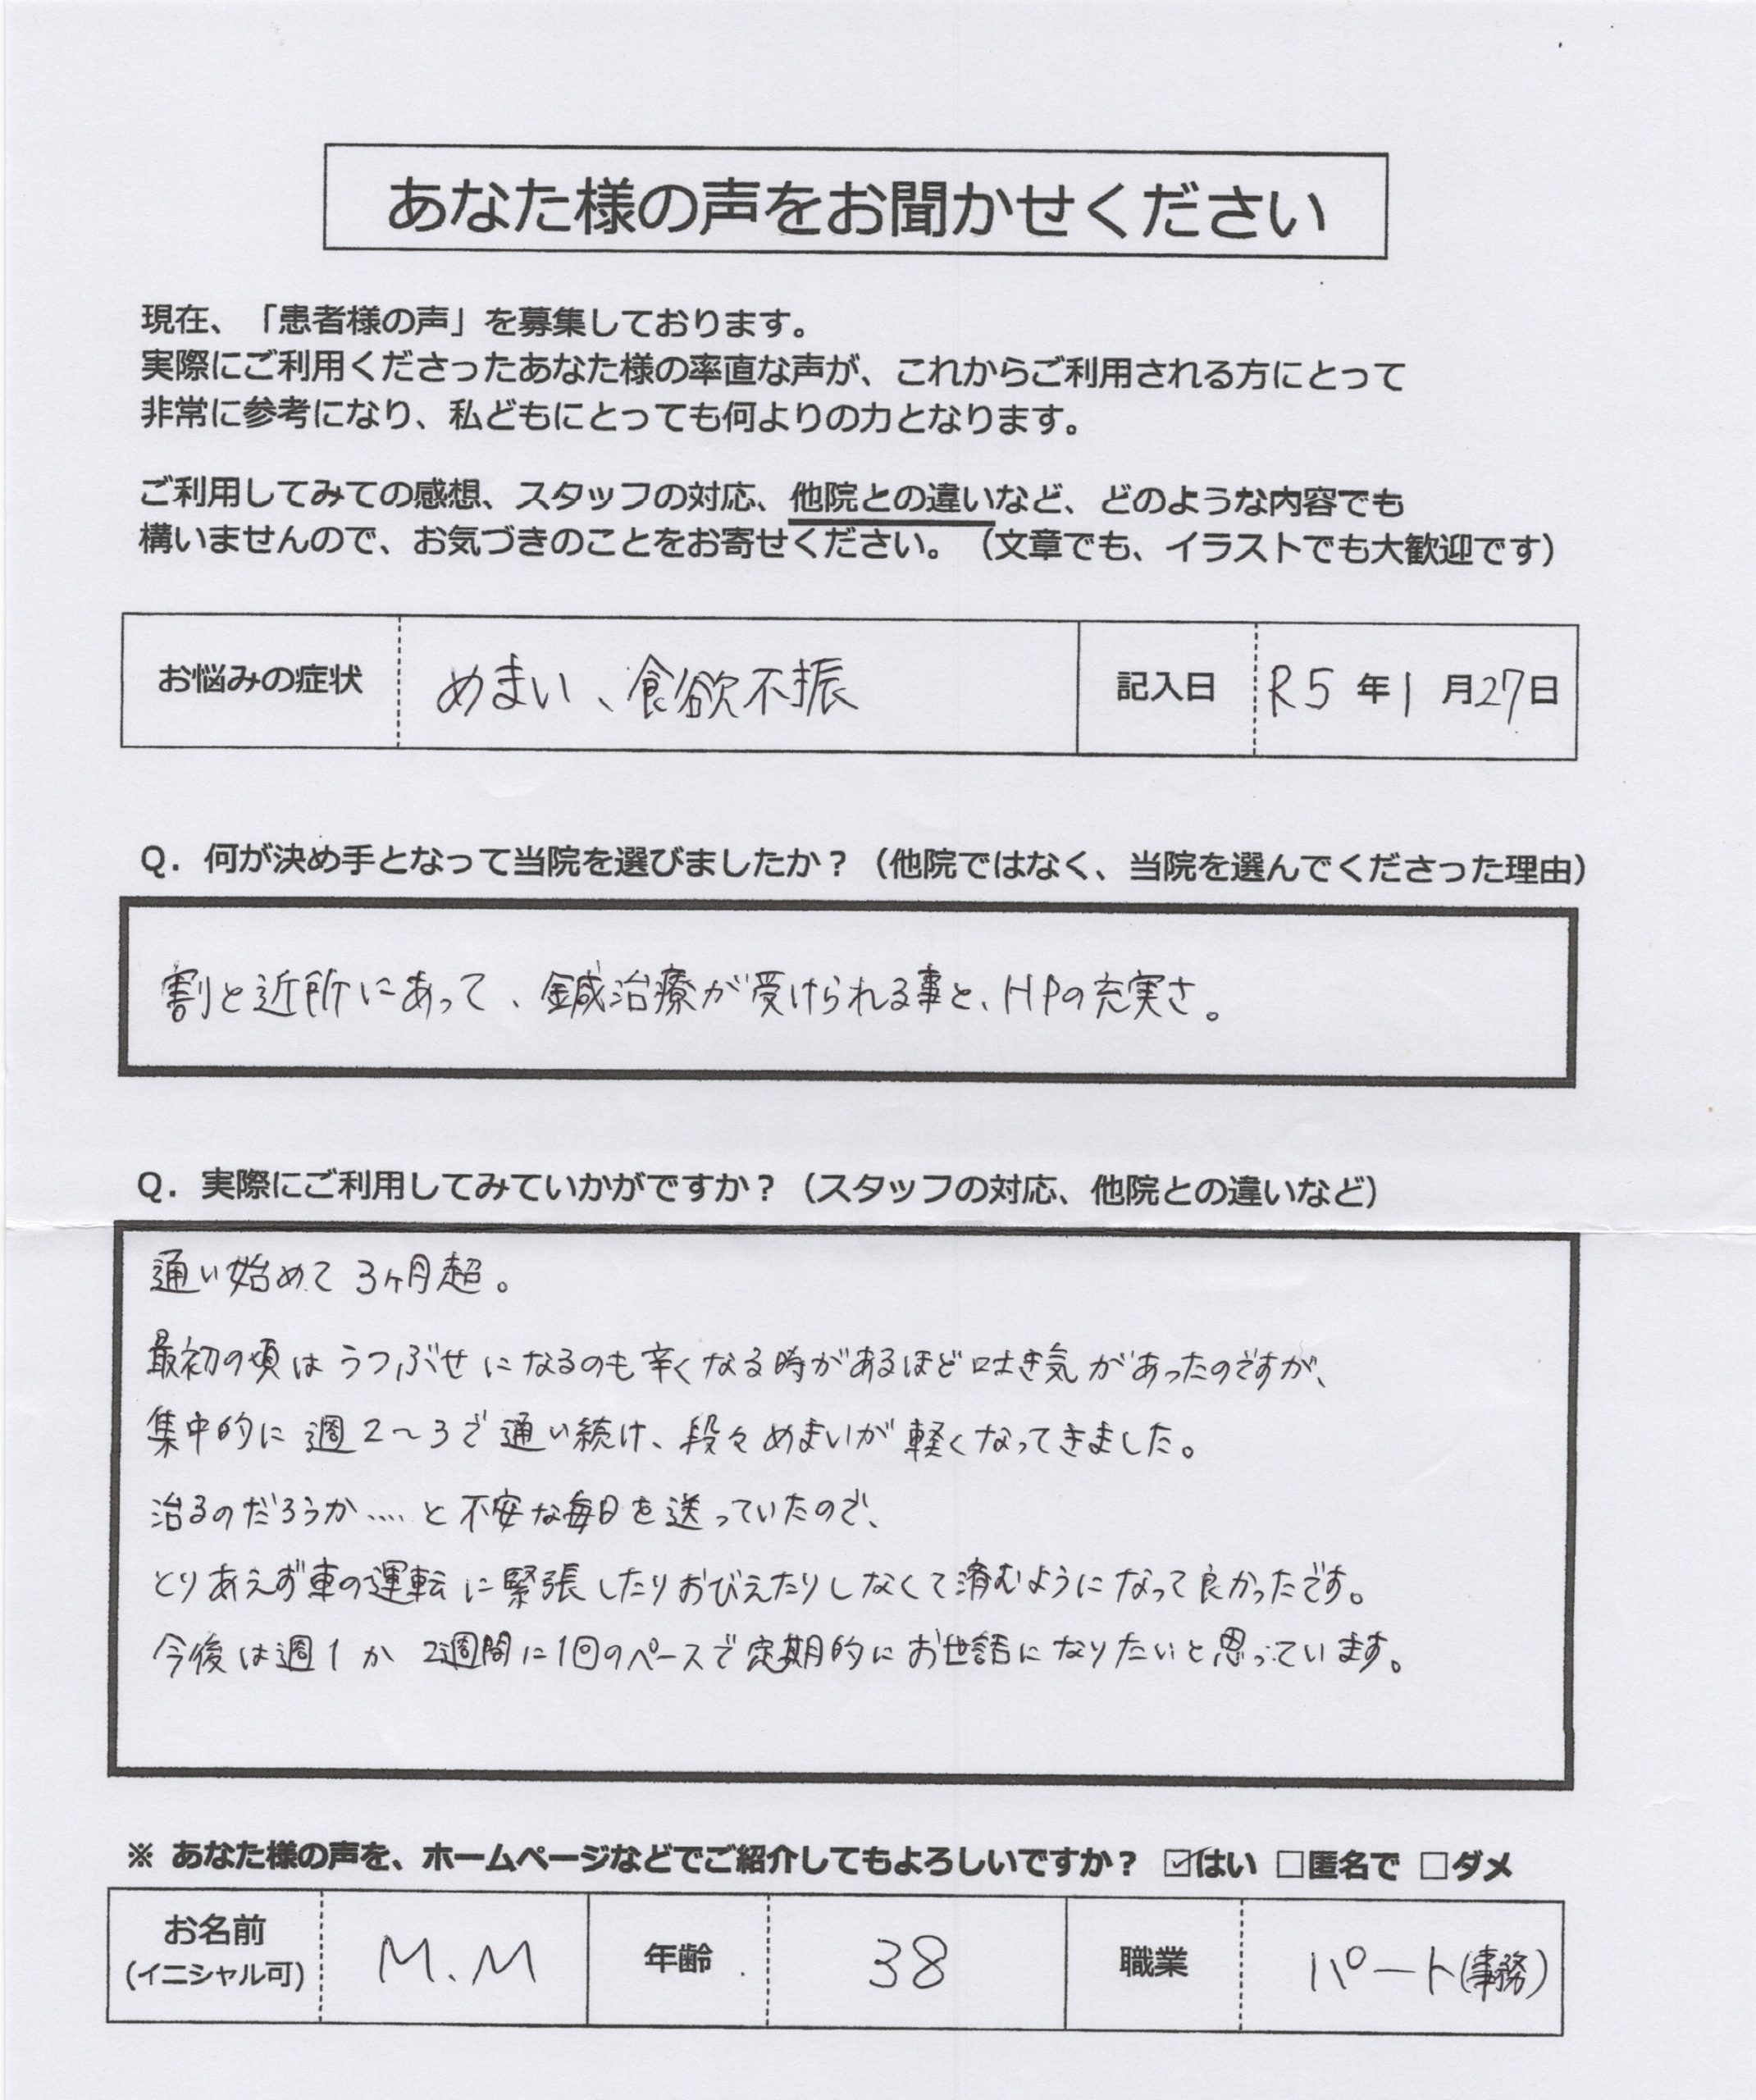 あなた様の声をお聞かせください
現在、「患者様の声」を募集しております。
実際にご利用くださったあなた様の率直な声が、これからご利用される方にとって
非常に参考になり、私どもにとっても何よりの力となります。
ご利用してみての感想、スタッフの対応、他院との違いなど、どのような内容でも
構いませんので、お気づきのことをお寄せください。（文章でも、イラストでも大歓迎です）
お悩みの症状 めまい、食欲不振 記入日 R5年1月27日
Q. 何が決め手となって当院を選びましたか？（他院ではなく、当院を選んでくださった理由）
割と近所にあって、鍼治療が受けられる事と、HPの充実さ。
Q. 実際にご利用してみていかがですか？（スタッフの対応、他院との違いなど）
通い始めて3ヶ月超。
最初の頃はうつぶせになるのも辛くなる時があるほど吐き気があったのですが、
集中的に週2〜3で通い続け、段々めまいが軽くなってきました。
治るのだろうか....と不安な毎日を送っていたので、
とりあえず車の運転に緊張したりおびえたりしなくて済むようになって良かったです。
今後は週1か2週間に1回のペースで定期的にお世話になりたいと思っています。
※ あなた様の声を、ホームページなどでご紹介してもよろしいですか？ ☑はい □匿名で □ダメ
お名前 (イニシャル可) M.M 年齢 38 職業 パート(事務)